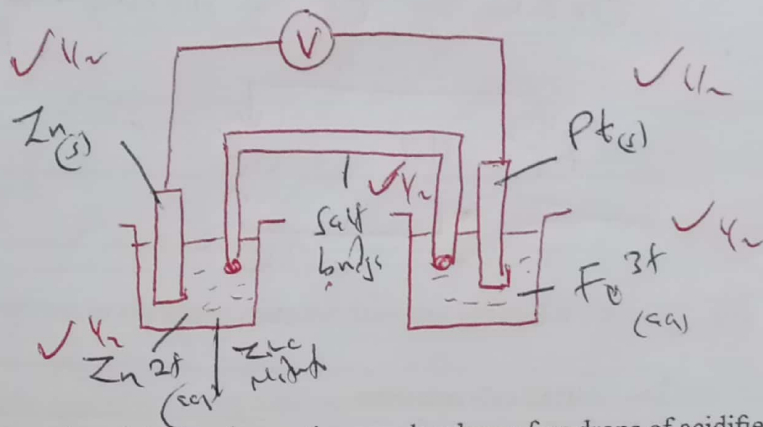 V
✓ ½
✓ ½
Zn(s)
Pt(s)
✓ ½
salt
bridge
✓ ½
Fe³⁺
(aq)
✓ ½
Zn²⁺
(aq)
zinc
drops of acidifie